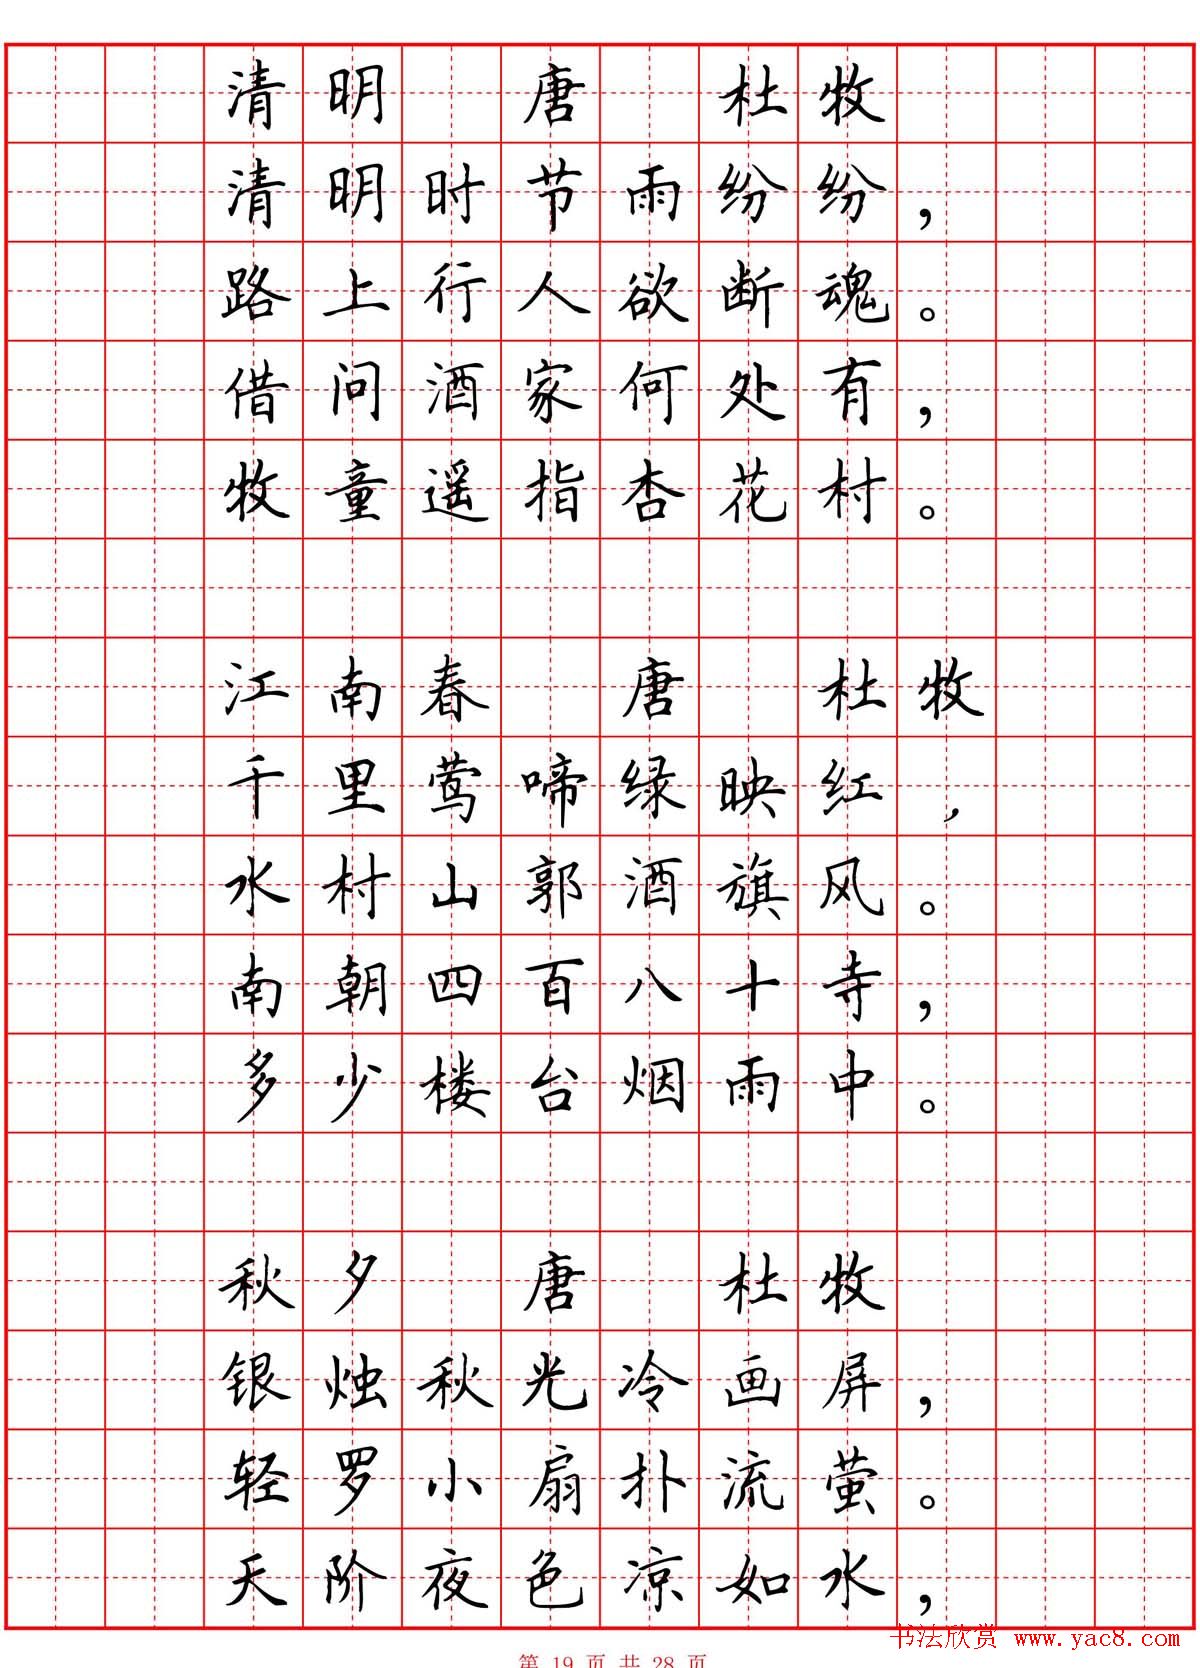 清明 唐 杜牧
清明时节雨纷纷，
路上行人欲断魂。
借问酒家何处有，
牧童遥指杏花村。
江南春 唐 杜牧
千里莺啼绿映红，
水村山郭酒旗风。
南朝四百八十寺，
多少楼台烟雨中。
秋夕 唐 杜牧
银烛秋光冷画屏，
轻罗小扇扑流萤。
天阶夜色凉如水，
书法欣赏 www.yac8.com
第 19 页 共 28 页